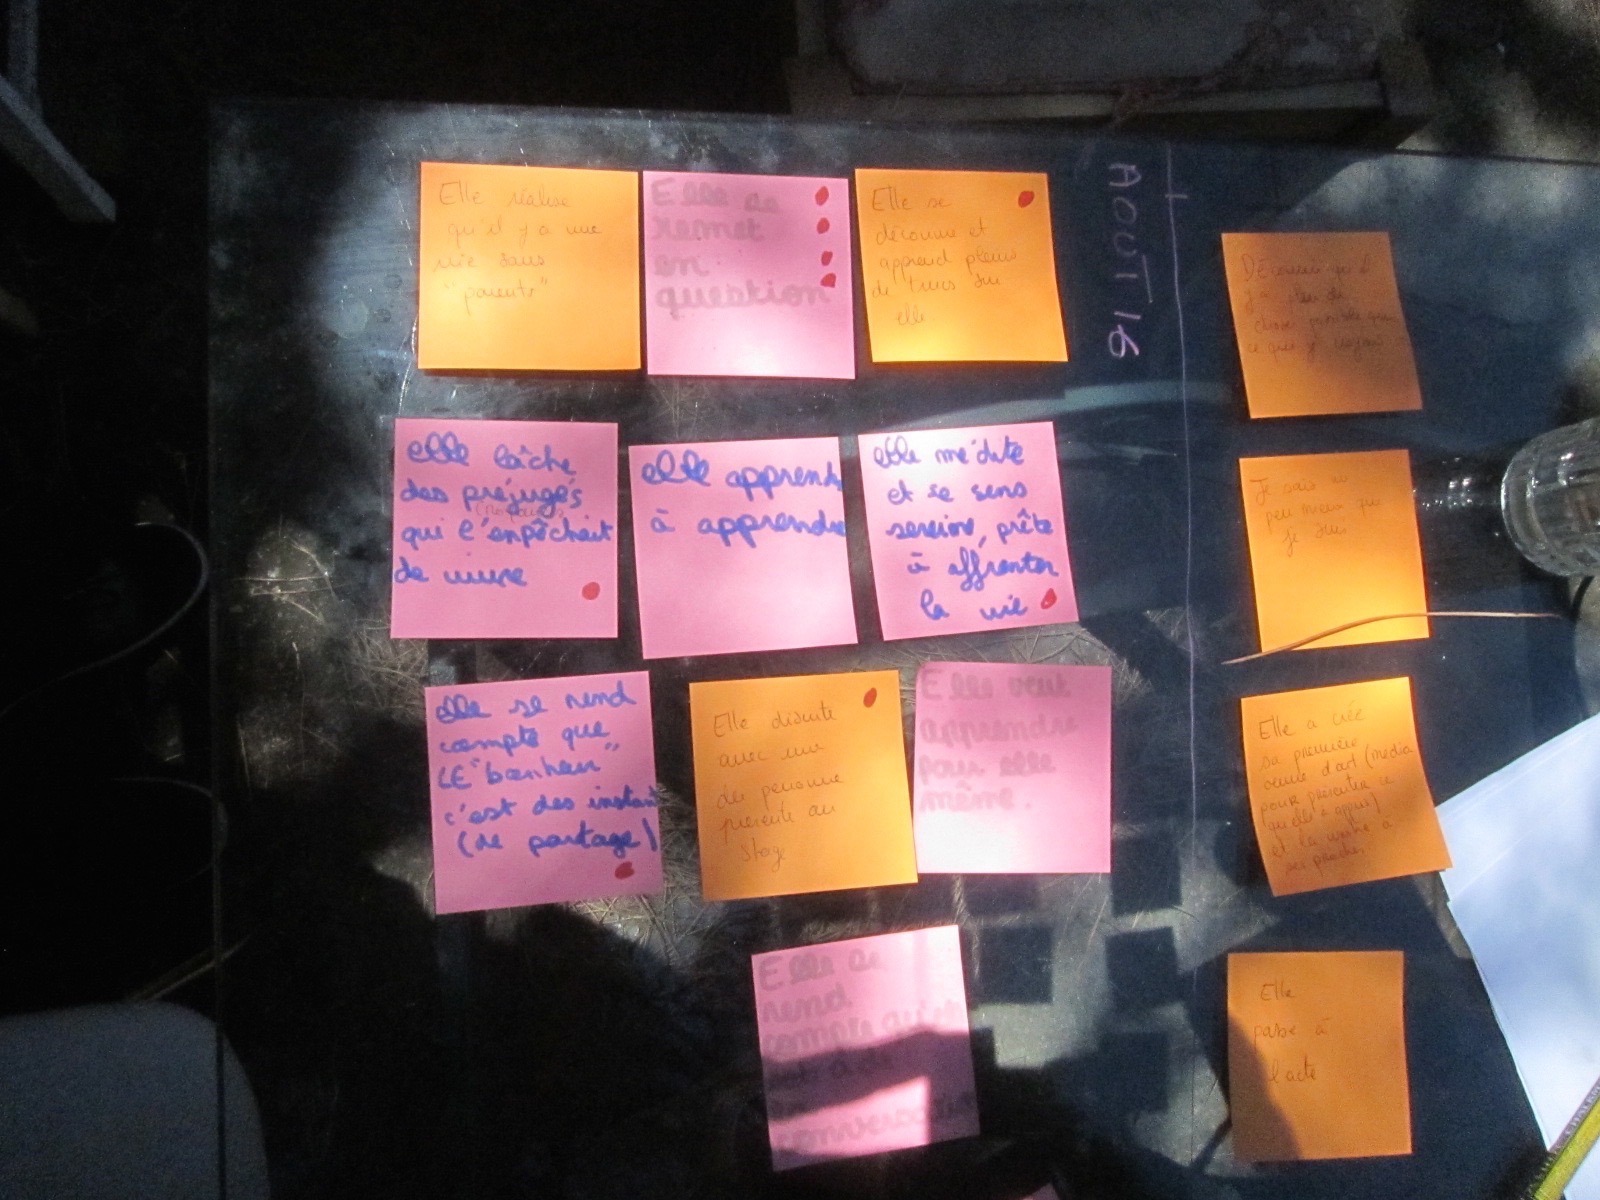 Elle réalise
qu'il y a une
vie sans
"parents"
Elle se
remet
en
question
Elle se
découvre et
apprend pleins
de trucs sur
elle
AOÛT 16
Découvrir qu'il
y a plein de
choses possible que
ce que j'
elle lâche
des préjugés
qui l'empêchait
de vivre
elle apprend
à apprendre
elle médite
et se sens
sereine, prête
à affronter
la vie
Je sais un
peu mieux qui
je suis
elle se rend
compte que
LE "bonheur"
c'est des instant
(de partage)
Elle discute
avec une
des personne
présente au
stage
Elle veut
apprendre
pour elle
même.
Elle a crée
sa première
oeuvre d'art (média
pour présenter ce
qu'elle a appris)
et la montre à
ses proches
Elle se
rend
compte qu'on
conversation
Elle
passe à
l'acte